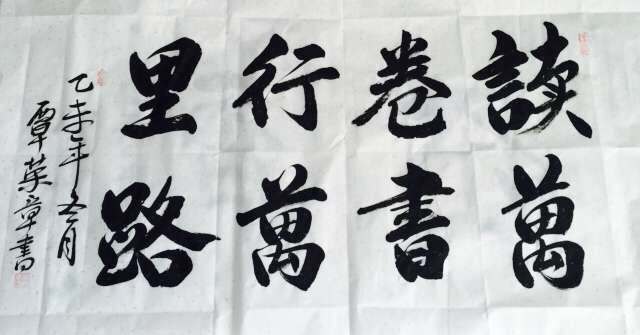 讀萬
卷書
行萬
里路
乙未年冬月
覃荣章書